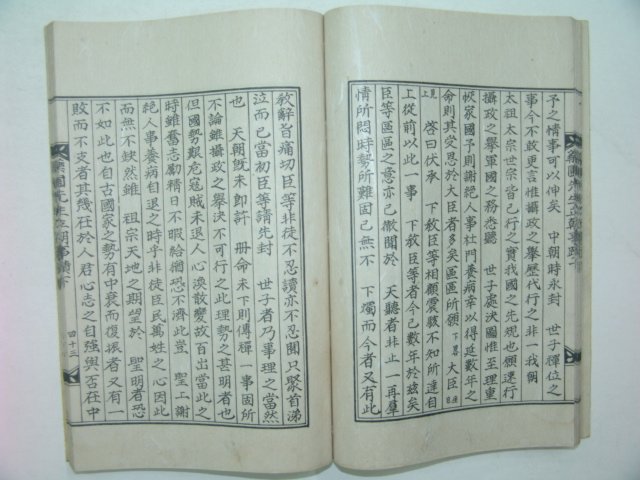 予之情事可以伸矣 中朝時永封 世子禪位之
事今不敢更言惟攝政之擧歷代行之非一我朝
太祖太宗世宗皆已行之實我國之先規也願速行
攝政之擧軍國之務悉聽 世子處決圖惟至理重
恢家國予則謝絶人事杜門養病幸以得延數年之
命則其受恩於大臣者多矣區區所願 大臣
上 啓曰伏承 下敎臣等相顧震駭不知所達自
上從前以此一事 下敎臣等者今已數年於玆矣
臣等區區之意亦已徹聞於 天聽者非止一再羣
情所悶時勢所難固已無不 下燭而今者又有此
敎辭旨痛切臣等非徒不忍讀亦不忍聞只聚首涕
泣而已當初臣等請先封 世子者乃事理之當然
也 天朝旣未卽許 冊命未下則傳禪一事固所
不論雖攝政之擧決不可行之此理勢之甚明者也
但國勢艱危冦賊未退人心渙散變故百出當此之
時雖奮志勵精日不暇給猶恐不濟此豈 聖上謝
絶人事養病自退之時乎非徒臣民萬姓之心因此
而無不缺然雖 祖宗天地之期望於 聖明者恐
不如此也自古國家之勢有中衰而復振者又有一
敗而不支者其幾在於人君心志之自強與否在中
先生立朝事蹟下 四十三